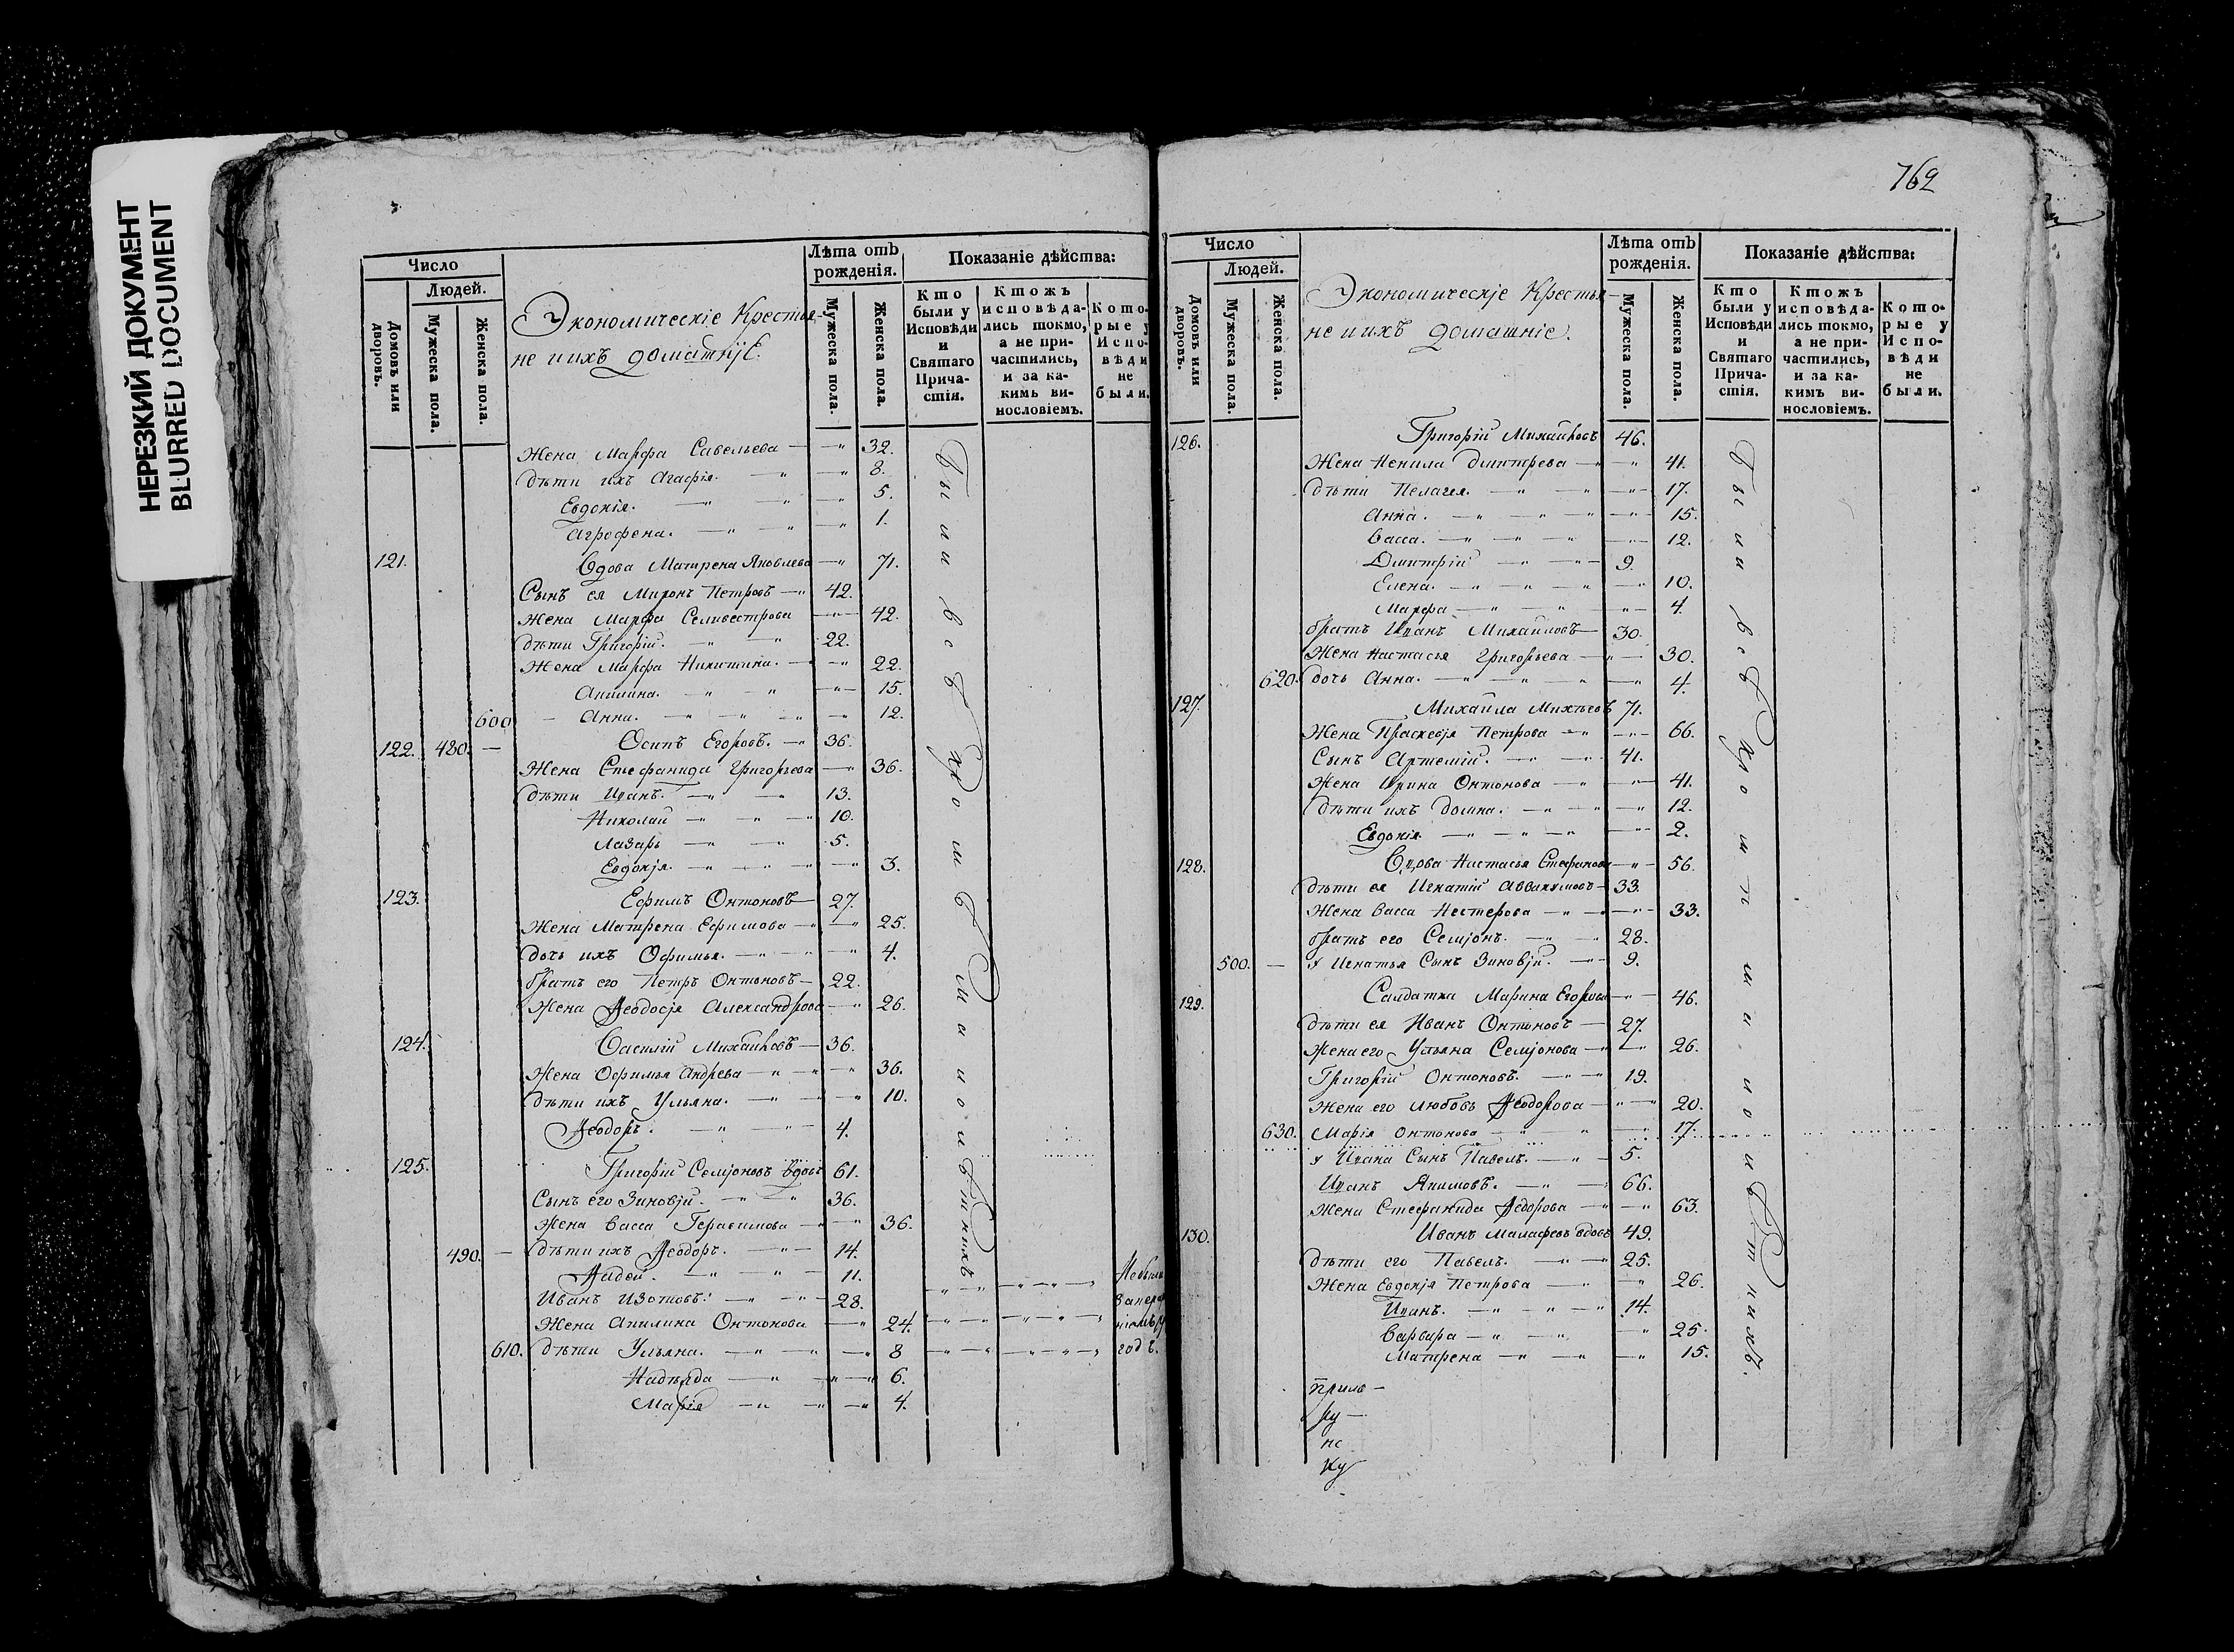 НЕРЕЗКИЙ ДОКУМЕНТ
BLURRED DOCUMENT
Число
Людей.
Домовъ или дворовъ.
Мужеска пола.
Женска пола.
Экономическіе Крестья-
не и ихъ домашнїе.
Лѣта отъ рожденія.
Мужеска пола.
Женска пола.
Показаніе дѣйства:
Кто были у Исповѣди и Святаго Причастія.
Ктожъ исповѣдались токмо, а не причастились, и за какимъ винословіемъ.
Которые у Исповѣди не были.
Жена Марфа Савельева 32.
дѣти ихъ Агафія. 8.
Евдокія. 5.
Агрофена. 1.
121. Вдова Матрена Яковлева 71.
Сынъ ея Миронъ Петровъ 42.
Жена Марфа Селивестрова 42.
дѣти Григорій. 22.
Жена Марфа Никитина. 22.
Акилина. 15.
600 Анна. 12.
122. 480. Осипъ Егоровъ. 36.
Жена Стефанида Григорьева 36.
дѣти Иванъ. 13.
Николай 10.
Лазарь 5.
Евдокїя. 3.
123. Ефимъ Онтоновъ 27.
Жена Матрена Ефимова 25.
дочь ихъ Офимья. 4.
братъ его Петръ Онтоновъ 22.
Жена Ѳеодосїя Александрова 26.
124. Василій Михайловъ 36.
Жена Офимья Андрева 36.
дѣти ихъ Ульяна. 10.
Ѳеодоръ. 4.
125. Григорій Семїоновъ вдовъ 61.
Сынъ его Зиновїй. 36.
Жена Васса Герасимова 36.
490. дѣти ихъ Ѳеодоръ. 14.
11.
Иванъ Изотовъ. 28.
Жена Акилина Онтонова 24.
610. дѣти Ульяна. 8
Надежда 6.
Марія 4.
Были всѣ кромѣ малолѣтнихъ
годъ.
762
Число
Людей.
Домовъ или дворовъ.
Мужеска пола.
Женска пола.
Экономическїе Крестья-
не и ихъ домашніе.
Лѣта отъ рожденія.
Мужеска пола.
Женска пола.
Показаніе дѣйства:
Кто были у Исповѣди и Святаго Причастія.
Ктожъ исповѣдались токмо, а не причастились, и за какимъ винословіемъ.
Которые у Исповѣди не были.
126. Григорій Михайловъ 46.
Жена Ненила Дмитрева 41.
дѣти Пелагея. 17.
Анна. 15.
Васса. 12.
Дмитрій 9.
Елена. 10.
Марфа 4.
братъ Иванъ Михайловъ 30.
Жена Настасья Григорьева 30.
620. дочь Анна. 4.
127. Михаила Михѣевъ 71.
Жена Прасковїя Петрова 66.
Сынъ Артемій. 41.
Жена Ирина Онтонова 41.
дѣти ихъ Домна. 12.
Евдокія 2.
128. Вдова Настасья Стефанова 56.
дѣти ея Игнатій Аввакумовъ 33.
Жена Васса Нестерова 33.
братъ его Семїонъ. 28.
500. У Игнатья Сынъ Зиновїй. 9.
129. Салдатка Марина Егорова 46.
дѣти ея Иванъ Онтоновъ 27.
Жена его Ульяна Семїонова 26.
Григорій Онтоновъ. 19.
Жена его Любовь Ѳеодорова 20.
630. Марія Онтонова 17.
У Ивана Сынъ Павелъ. 5.
Иванъ Якимовъ. 66.
Жена Стефанида Ѳедорова 63.
130. Иванъ Малафеевъ вдовъ 49.
дѣти его Павелъ. 25.
Жена Евдокїя Петрова 26.
Иванъ. 14.
Варвара 25.
Матрена 15.
Были всѣ кромѣ малолѣтнихъ.